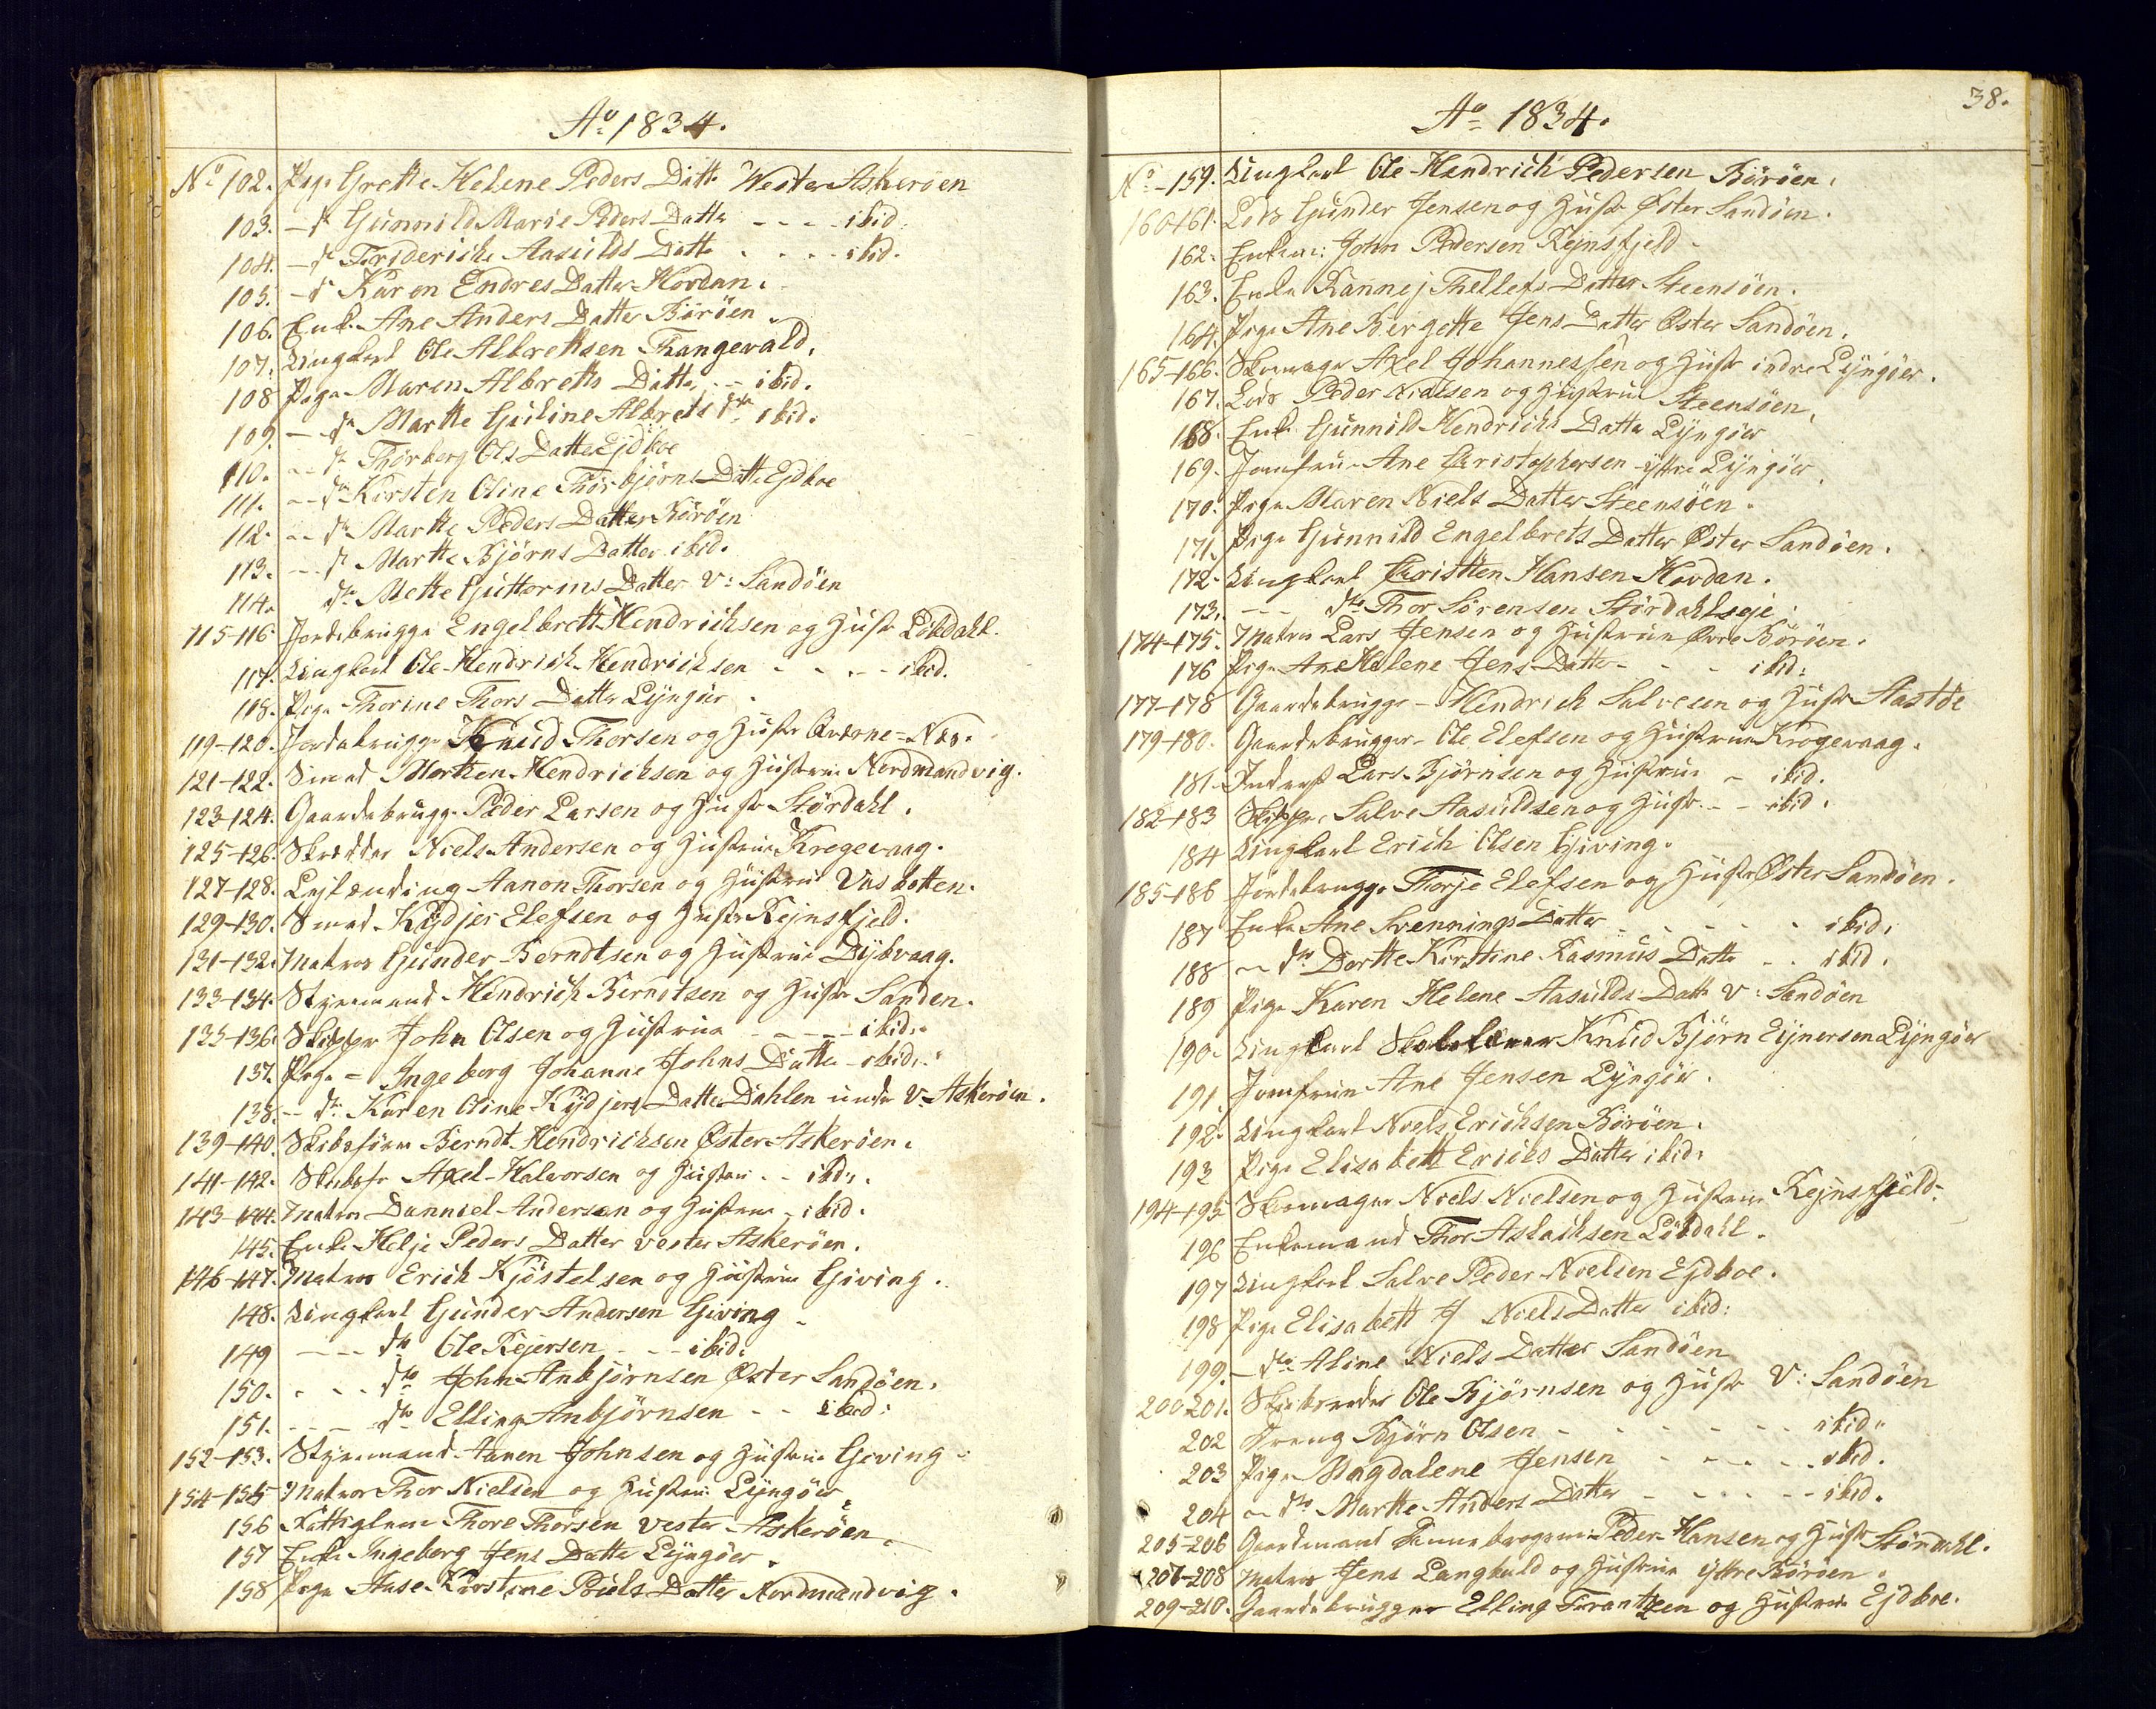 Ao 1834.
No 102. Pige Grethe Helene Peders Datt. Wester Askerøen
103. – do Gunnild Marie Peders Datter - - - ibid.
104. – do Friderikke Aasulds Datt - - - ibid.
105. – do Karen Endres Datter Hovdan.
106. Enke Ane Anders Datter Børøen
107. Ungkarl Ole Albretsen Thangevald.
108 Pige Maren Albreths Datter - - ibid.
109. – do Marthe Guline Albrets Dtr ibid.
110. – do Thorborg Ols Datter Ejdboe
111. – do Kirsten Oline Thorbjørns Datt Ejdboe
112. – do Marthe Peders Datter Børøen
113. – do Marthe Bjørns Datter ibid.
114. do Mette Guttorms Datter V: Sandøen
115-116. Jordebrugge Engelbrett Hendrichsen og Hustr Løvdahl.
117. Ungkarl Ole Hendrich Hendrichsen - - - ibid.
118. Pige Thorine Thors Datter Lyngøer
119-120. Jordebrugge Knud Thorsen og Hustr Qværne-Næs.
121-122. Smed Morthen Hendrichsen og Hustrue Nordmandvig.
123-124. Gaardebrugg. Peder Larsen og Hustr Størdahl.
125-126. Skrædder Niels Andersen og Hustrue Kregevaag.
127-128. Lejlænding Aanon Thorsen og Hustrue Vasbotten.
129-130. Smed Kydjer Elefsen og Hustr Rejnsfjeld.
131-132. Matros Gunder Berndtsen og Hustrue Dybvaag.
133-134. Styrmand Hendrich Berndtsen og Hustr Sanden.
135-136. Skipper John Olsen og Hustrue - - - ibid.
137. Pige – Ingeborg Johanne Johns Datter - ibid.
138. – do Karen Oline Kydjers Datter Dahlen under V. Askerøen.
139-140. Skibsfører Berndt Hendrichsen Øster Askerøen.
141-142. Skibsfr Axel Halvorsen og Hustrue - - ibid.
143-144. Matros Danniel Andersen og Hustrue - ibid.
145. Enke Helje Peders Datter vester Askerøen.
146-147. Matros Erich Kjøstelsen og Hustrue Giving.
148. Ungkarl Gunder Andersen Giving
149 - - - do Ole Rejersen - - - ibid.
150. - - - do John Anbjørnsen Øster Sandøen.
151. - - - do Elling Anbjørnsen - - ibid:
152-153. Styrmand Aanen Johnsen og Hustrue Giving
154-155 Matros Thor Nielsen og Hustrue Lyngøer
156 Thore Thorsen vester Askerøen
157 Enke Ingeborg Jens Datter Lyngøer
158 Pige Aase Kirstine Poüels Datter Nordmandvig.
38.
Ao 1834.
No 159. Ungkarl Ole Hendrich Pedersen Børøen.
160-161. Lods Gunder Jensen og Hustr Øster Sandøen.
162. Enkem: John Pedersen Rejnsfjeld
163. Enke Rannej Thellefs Datter Steensøen.
164. Pige Ane Bergette Jens Datter Øster Sandøen.
165-166. Skomager Axel Johannessen og Hustr indre Lyngøer.
167. Lods Peder Nielsen og Hustrue Steensøen
168. Enke Gunnild Hendrichs Datter Lyngøer
169. Jomfrue Ane Christophersen yttre Lyngøer
170. Pige Maren Niels Datter Steensøen.
171. Pige Gunnild Engelbrets Datter Øster Sandøen.
172. Ungkarl Christen Hansen Hovdan.
173. - - do Thor Sørensen Størdahlseje:
174-175. Matros Lars Jensen og Hustrue Øvre Børøen.
176 Pige Ane Helene Jens Datter - - - ibid:
177-178 Gaardebrugge – Hendrich Salvesen og Hustr Aastøe
179-180. Gaardebrugger – Ole Elefsen og Hustrue Krogevaag.
181. Inderst Lars Bjørnsen og Hustrue - ibid.
182-183 Skipper Salve Aasuldsen og Hustr - - ibid.
184 Ungkarl Erich Olsen Giving.
185-186 Jordebrugge Thorje Elefsen og Hustr Øster Sandøen.
187 Enke Ane Svennings Datter - - - - ibid.
188 – do Dorthe Kirstine Rasmus Datter - - ibid.
189 Pige Karen Helene Aasulds Datt V: Sandøen
190. Ungkarl Skolelærer Knud Bjørn Ejnersen Lyngøer
191. Jomfrue Ane Jensen Lyngøer.
192. Ungkarl Niels Erichsen Børøen.
193 Pige Elisabett Erichs Datter ibid.
194-195 Skomager Niels Nielsen og Hustrue Rejnsfjeld.
196 Enkemand Thor Aslachsen Løvdahl.
197 Ungkarl Salve Peder Nielsen Ejdboe.
198 Pige Elisabett J Niels Datter ibid:
199. – do Aline Niels Datter Sandøen
200-201. Ole Bjørnsen og Hustr V: Sandøen
202 Dreng Bjørn Olsen - - - - - ibid.
203 Pige Magdalene Jensen - - - - ibid.
204 – do Marthe Anders Datter - - - - ibid.
205-206 Gaardmand Dannebrogsm: Peder Hansen og Hustr Størdahl.
207-208 Matros Jens Langhuld og Hustrue yttre Børøen.
209-210. Gaardebrugger Elling Frantzen og Hustrue Ejdboe.